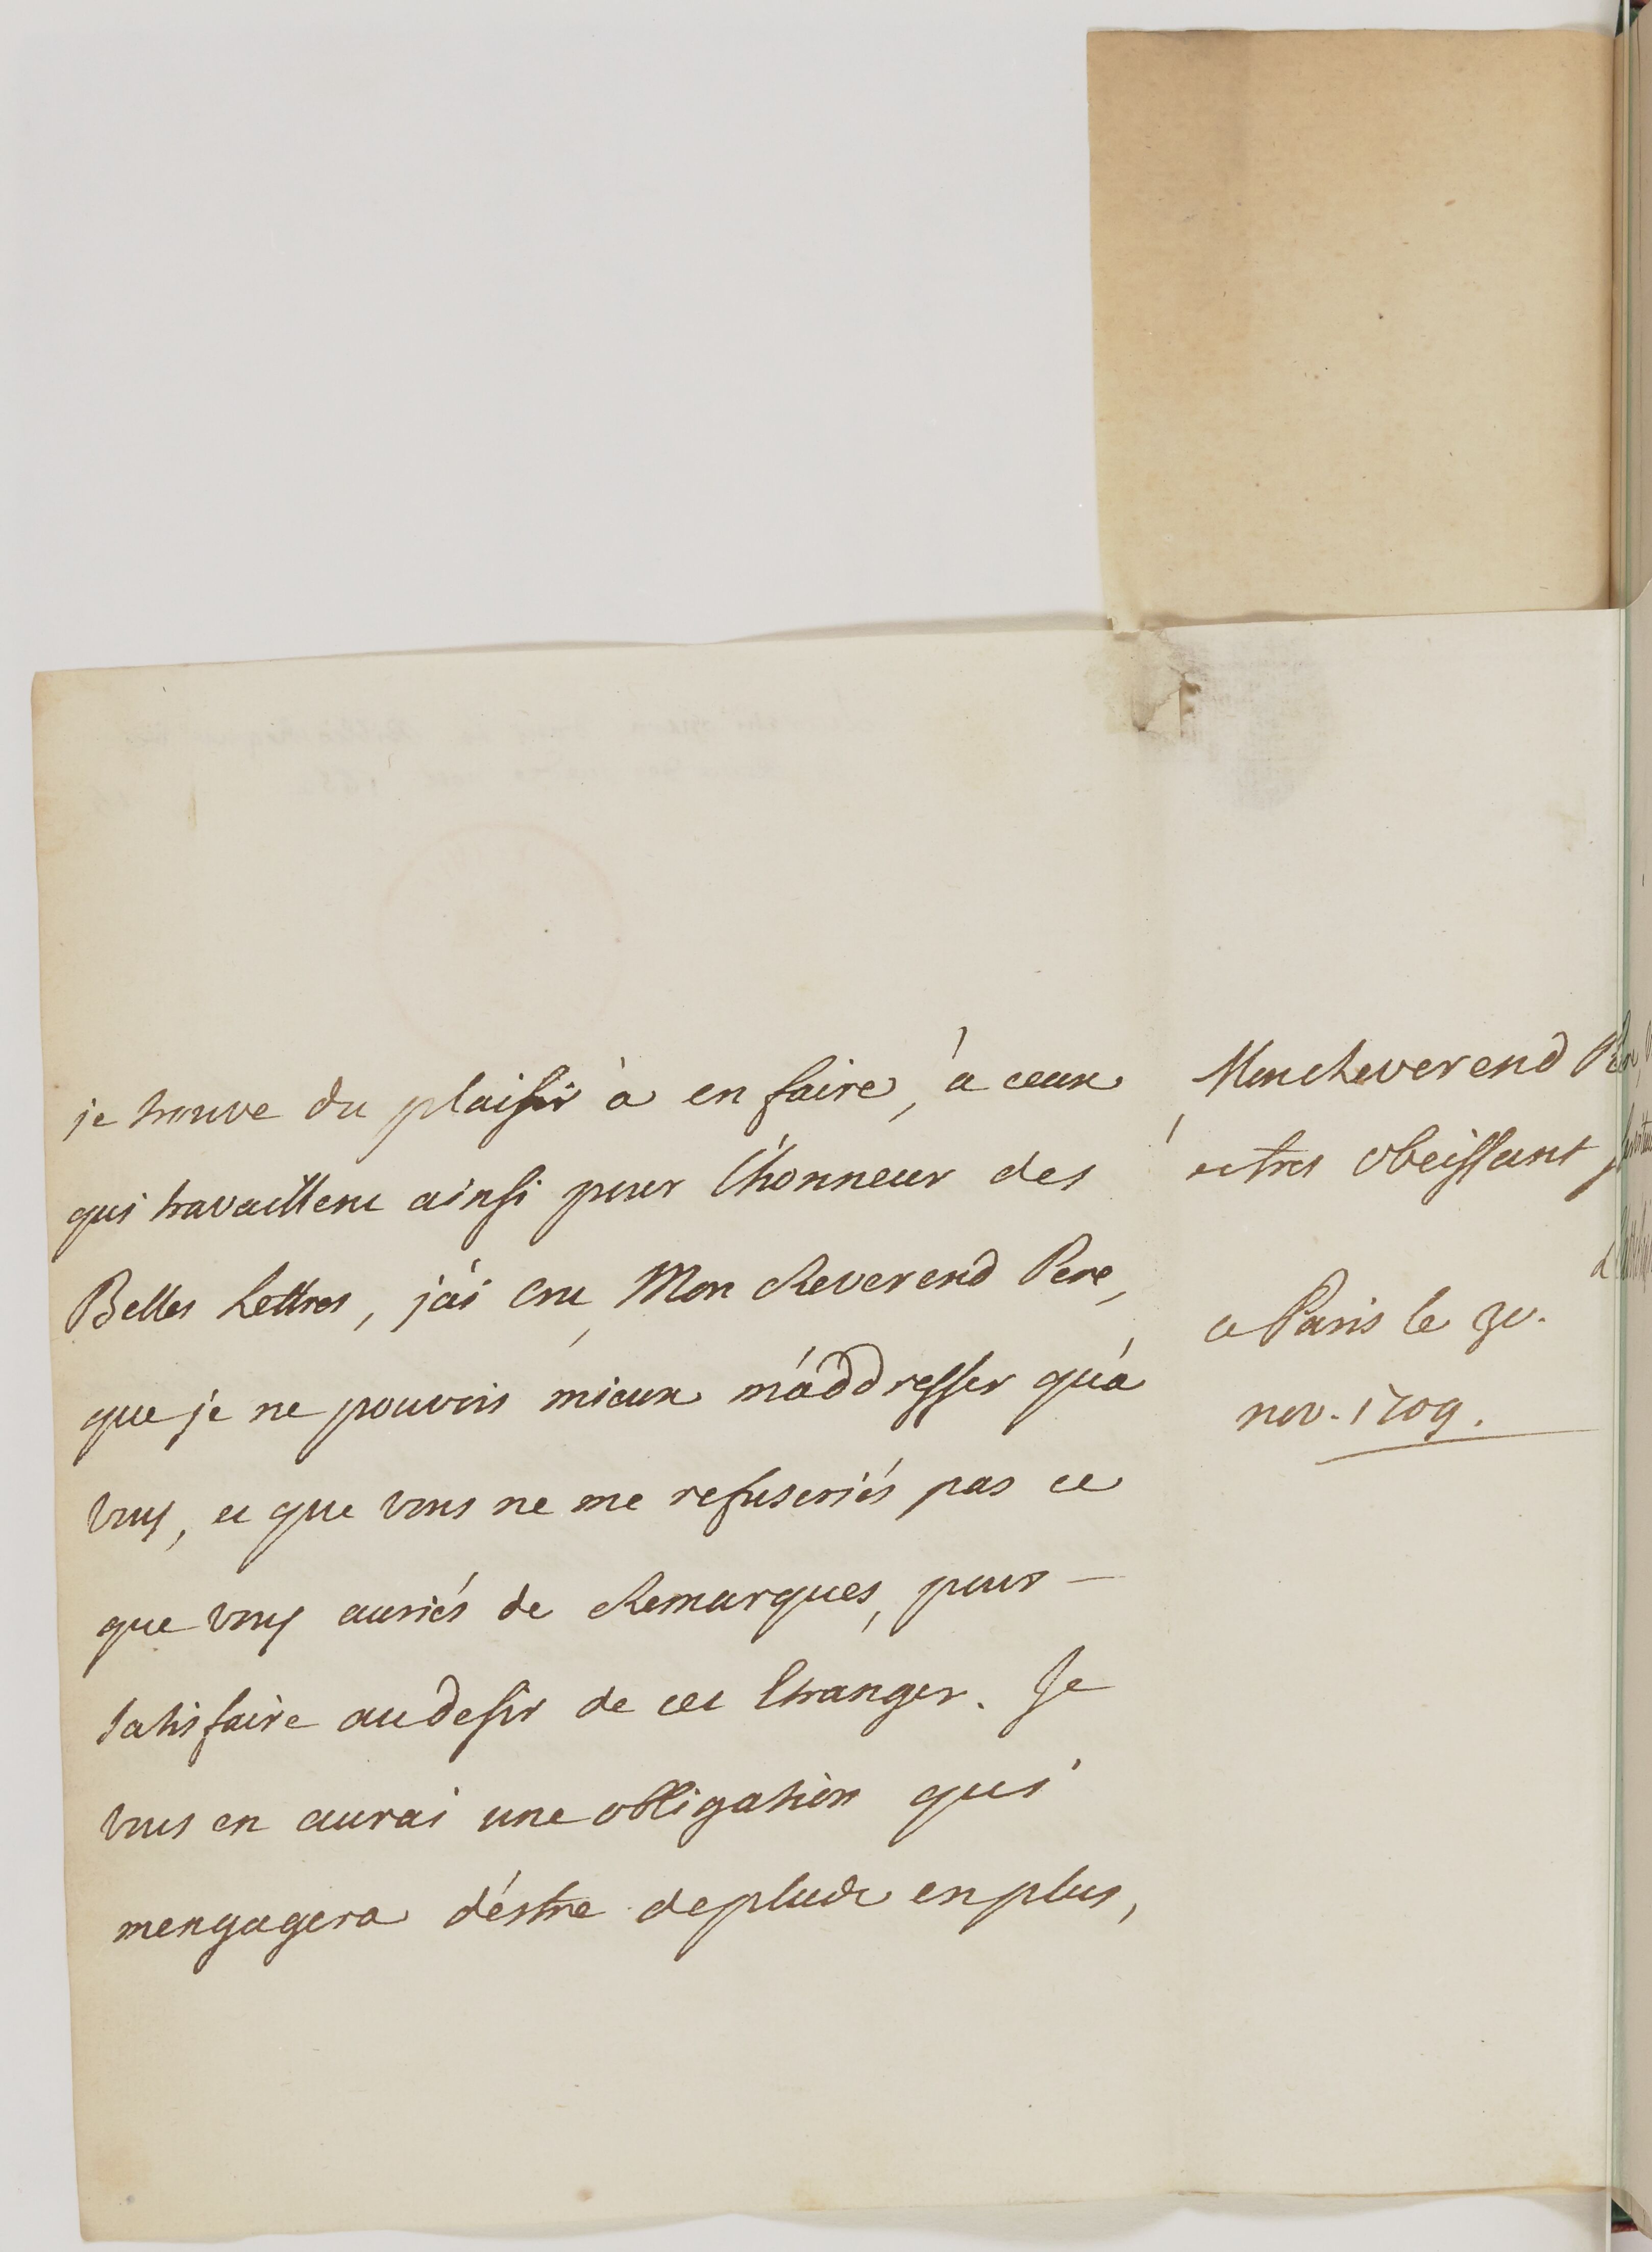 je trouve du plaisir à en faire, à ceux
qui travaillent ainsi pour l'honneur des
Belles Lettres, j'ai cru, Mon Reverend Pere,
que je ne pouvois mieux m'addresser qu'à
vous, et que vous ne me refuseriés pas ce
que vous auriés de Remarques, pour
satisfaire au desir de cet Etranger. Je
vous en aurai une obligation qui
mengagera d'éstre de plus en plus,
Mon Reverend
et tres obeissant
a Paris le 30.
nov. 1709.